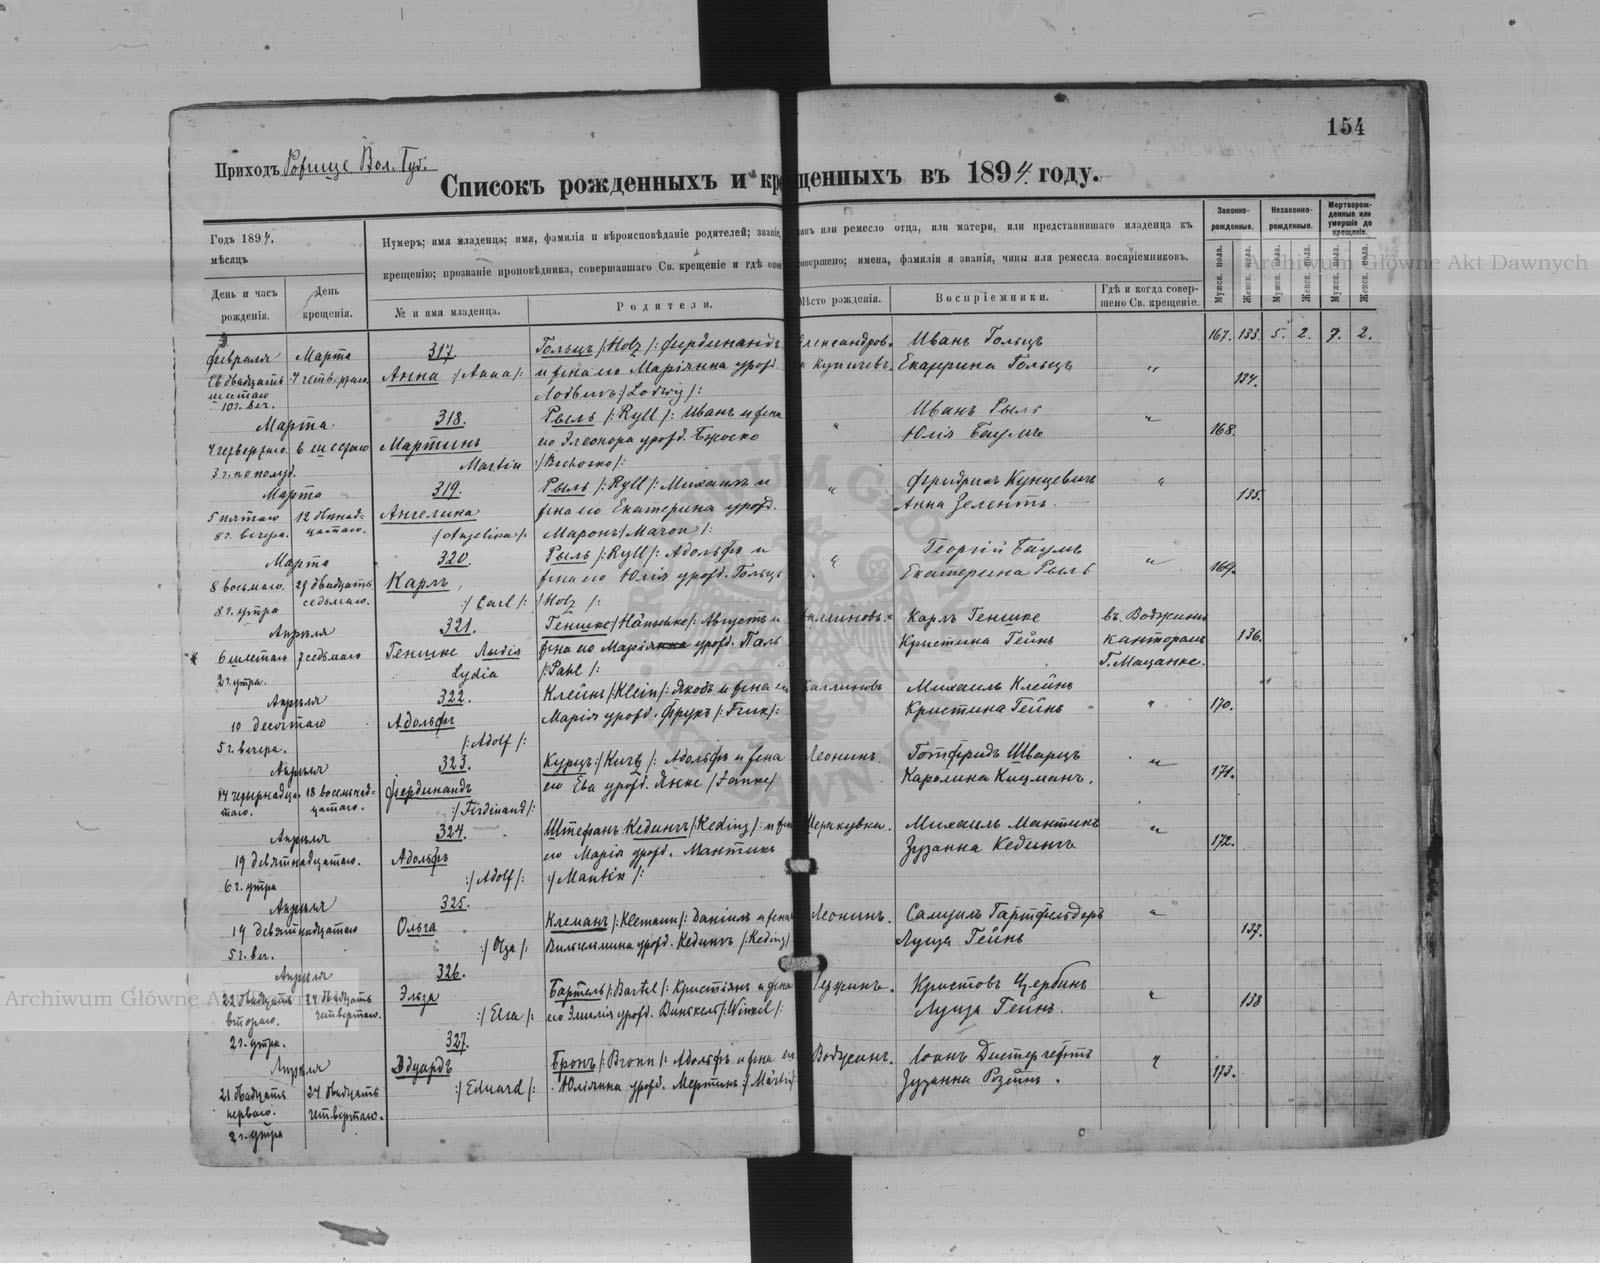 154
Приходъ Рожище Вол. Губ.
Списокъ рожденныхъ и крещенныхъ въ 1894 году.
Годъ 1894.
мѣсяцъ
День и часъ рожденія.
День крещенія.
Нумеръ; имя младенца; имя, фамилія и вѣроисповѣданіе родителей; званіе, чинъ или ремесло отца, или матери, или представившаго младенца къ
крещенію; прозваніе проповѣдника, совершавшаго Св. крещеніе и гдѣ оное совершено; имена, фамиліи и званія, чины или ремесла воспріемниковъ.
№ и имя младенца.
Родители.
Мѣсто рожденія.
Воспріемники.
Гдѣ и когда совершено Св. крещеніе.
Законнорожденные.
Незаконнорожденные.
Мертворожденные или умершіе до крещенія.
Мужск. пола.
Женск. пола.
Мужск. пола.
Женск. пола.
Мужск. пола.
Женск. пола.
167. 133. 5. 2. 7. 2.
Февраля Марта 317. Гольцъ /:Holz/: Фердинандъ Александров- Иванъ Гольцъ
26 двадцать 4 четверт. Анна :/Anna/: и жена его Маріянна урожд. ка Купичевъ. Екатерина Гольцъ " 134.
шестаго Лодвигъ :/Lodwig/:
10 г. веч.
Марта 318. Рыль /:Ryll/: Иванъ и жена " Иванъ Рыль "
4 четвертаго. 6 шестаго Мартинъ его Элеонора урожд. Бжоско Юлія Баумъ 168.
3 г. по полуд. Martin
Марта 319. Рыль /:Ryll/: Михаилъ и " Фридрихъ Кунцевичъ "
5 пятаго 12 двѣнад- Ангелина жена его Екатерина урожд. Анна Зелентъ. 135.
8 г. вечера. цатаго. /Angelina/: Маронъ /Maron/:
Марта 320. Рыль /:Ryll/: Адольфъ и " Георгій Баумъ "
8 восьмаго. 27 двадцать Карлъ, жена его Юлія урожд. Гольцъ Екатерина Рыль 169.
8 г. утра седьмаго. :/Carl/: /Holz/:
Апрѣля 321. Геншке /Hänschke/: Августъ и Калиновъ. Карлъ Геншке въ
6 шестаго 7 седьмаго Геншке Лидія жена его Марія урожд. Паль Кристина Гейнъ канторомъ 136.
2 г. утра. Lydia /:Pahl/: Г. Мацанке.
Апрѣля 322. Клейнъ /:Klein/: Якобъ и жена его Калиновъ Михаилъ Клейнъ
10 десятаго Адольфъ Марія урожд. Фрукъ Кристина Гейнъ " 170.
5 г. вечера. /:Adolf/:
Апрѣля 323. Курцъ :/Kurtz/: Адольфъ и жена Леонинъ. Готфридъ Шварцъ "
14 четырнадца- 18 восемнад- Фердинандъ его Ева урожд. Янке /Janke/ Каролина Кицманъ. 171.
таго. цатаго. :/Ferdinand/:
Апрѣля 324. Штефанъ Кедингъ /:Keding/: и жена Михаилъ Мантикъ "
19 девятнадцатаго. Адольфъ его Марія урожд. Мантикъ Зузанна Кедингъ 172.
6 г. утра :/Adolf/: /Mantik/:
Апрѣля 325. Клеманъ /:Klemann/: Даніилъ и жена Леонинъ. Самуилъ "
19 девятнадцатаго Ольга Вильгельмина урожд. Кедингъ /:Keding/ Луиза Гейнъ 137.
5 г. веч. :/Olga/:
Апрѣля 326. Бартель /:Bartel/: Кристіянъ и жена Кристовъ "
22 двадцать 24 двадцать Эльза его Эмилія урожд. Винкель /:Winkel/: Луиза Гейнъ. 138
втораго. четвертаго. :/Elsa/:
2 г. утра.
Апрѣля 327. Бронъ /:Bronn/: Адольфъ и жена его Іоанъ "
21 двадцать 24 двадцать Эдуардъ Юліянна урожд. Мертинъ /Märtin/ Зузанна Розейнъ. 173.
перваго. четвертаго. :/Eduard/:
2 г. утра
Archiwum Główne Akt Dawnych
Archiwum Główne